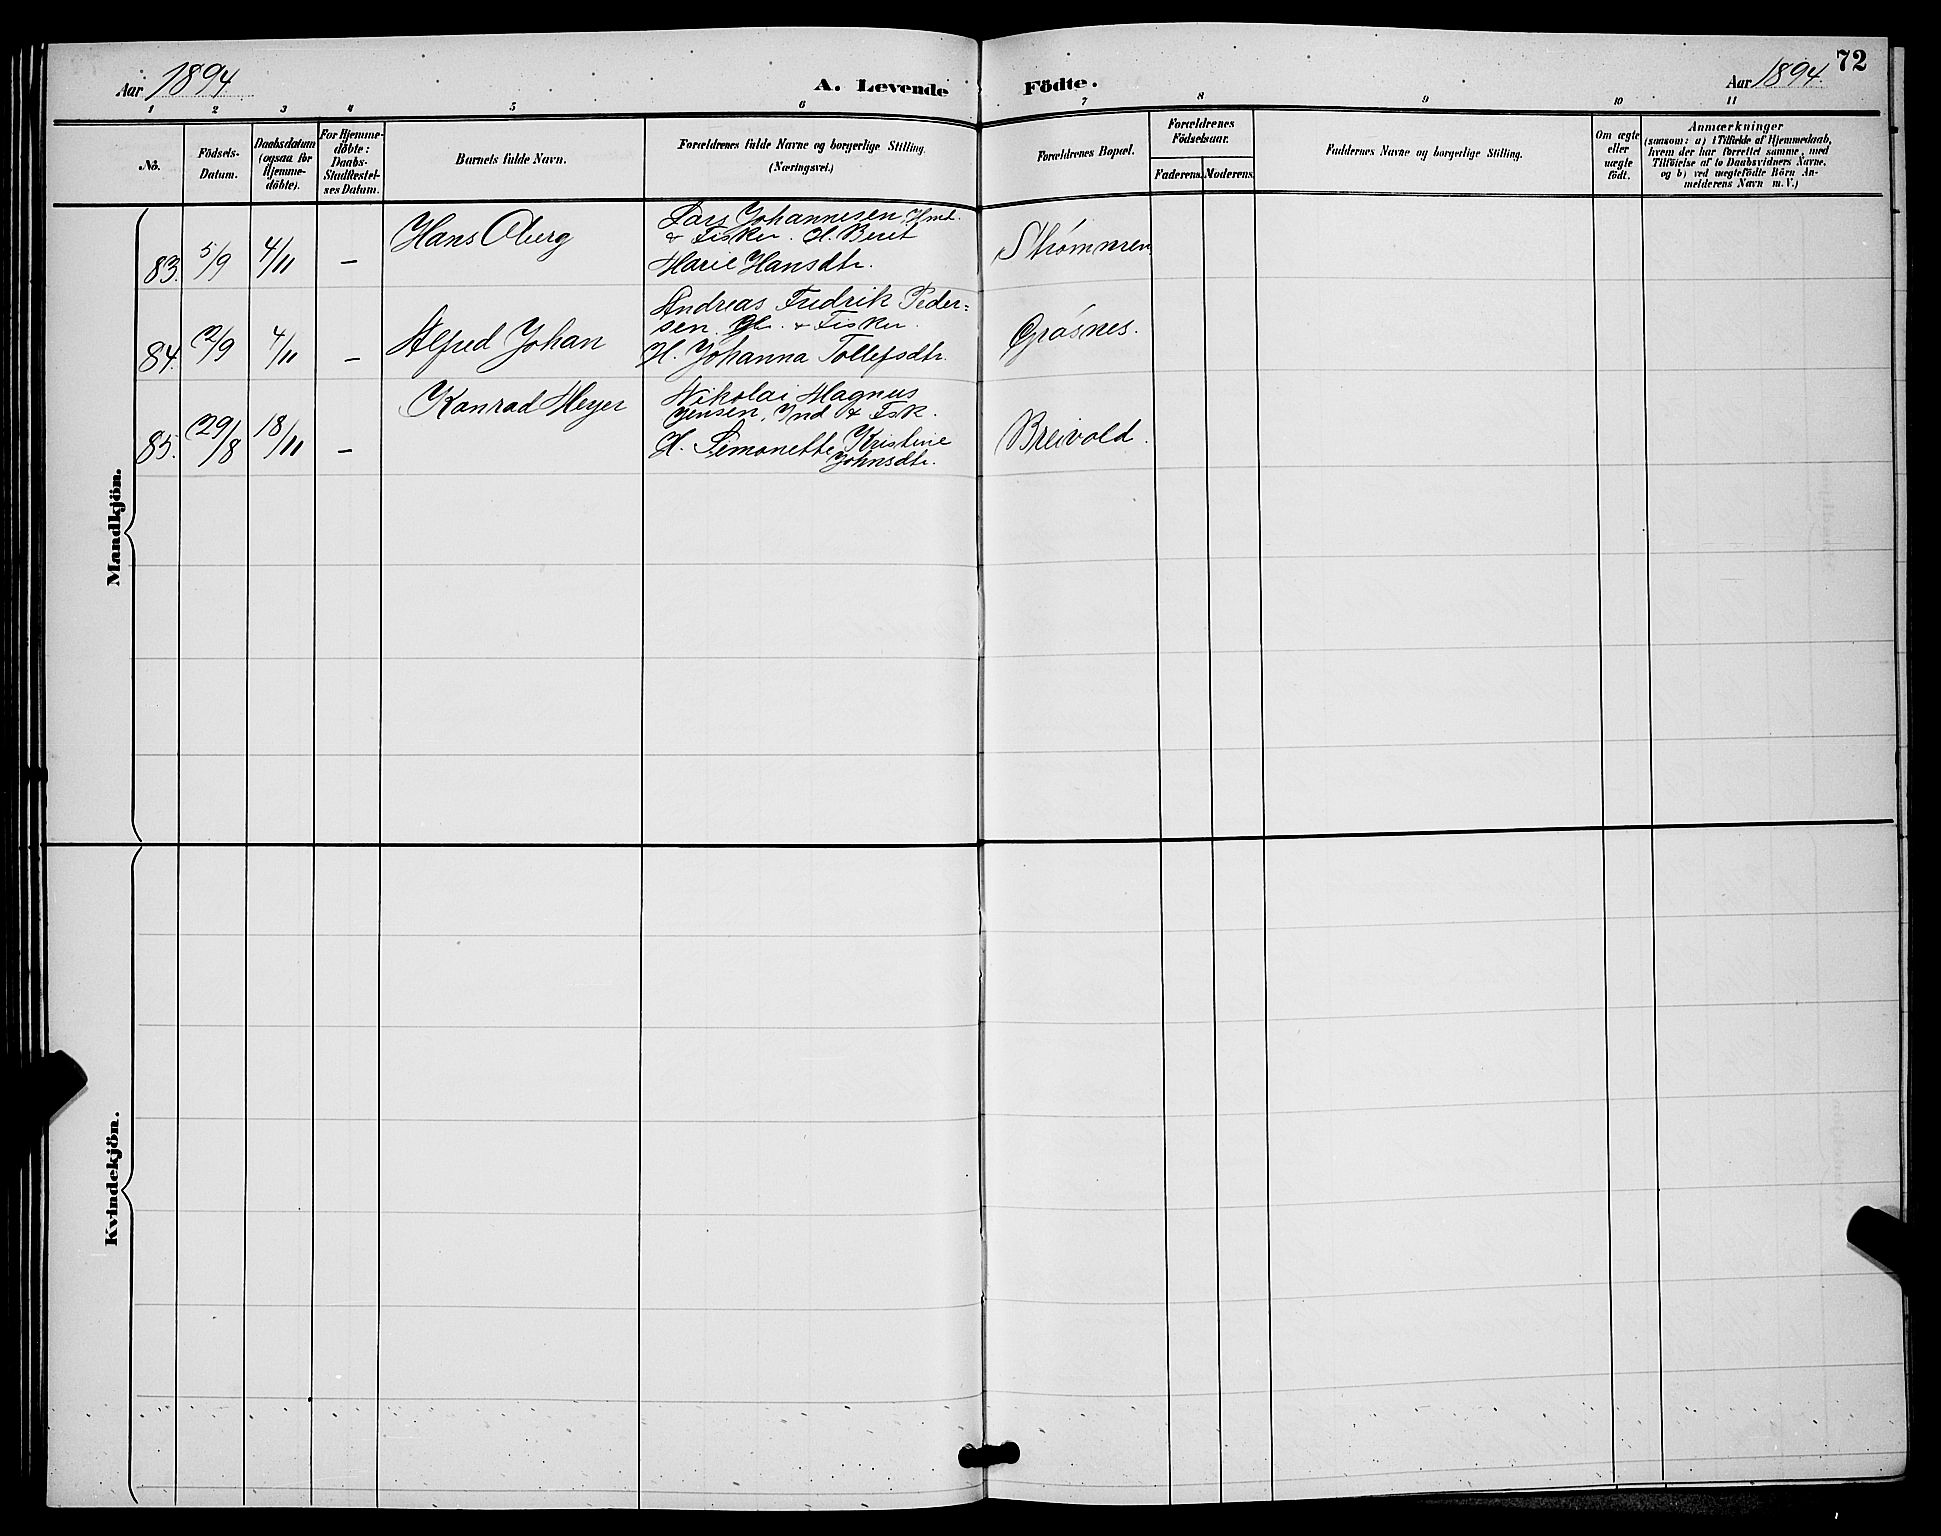 72
Aar 1894 A. Levende Födte. Aar 1894.
1 2 3 4 5 6 7 8 9 10 11
No.
Födsels-
Datum.
Daabsdatum
(ogsaa for
Hjemme-
döbte).
For Hjemme-
döbte:
Daabs-
Stadfæstel-
ses Datum.
Barnets fulde Navn.
Forældrenes fulde Navne og borgerlige Stilling.
(Næringsvei.)
Forældrenes Bopæl.
Forældrenes
Födselsaar.
Faderens. Moderens.
Faddernes Navne og borgerlige Stilling.
Om ægte
eller
uægte
födt.
Anmærkninger
(saasom: a) i Tilfælde af Hjemmedaab,
hvem der har forrettet samme, med
Tilföielse af to Daabsvidners Navne,
og b) ved uægtefödte Börn An-
melderens Navn m. V.)
Mandkjön.
83. 5/9 4/11 – Hans Oberg
Lars Johannesen, Ind.
& Fisker. H. Beret
Marie Hansdtr.
Strømmen
84. 2/9 4/11 – Alfred Johan
Andreas Fredrik Peder-
sen. & Fisker.
H. Johanna Tollefsdtr.
Grøsnes.
85. 29/8 18/11 – Konrad Meyer
Nikolai Magnus
Jensen, Ind & Fsk.
H. Simonette Kristine
Johnsdtr.
Breivold.
Kvindekjön.